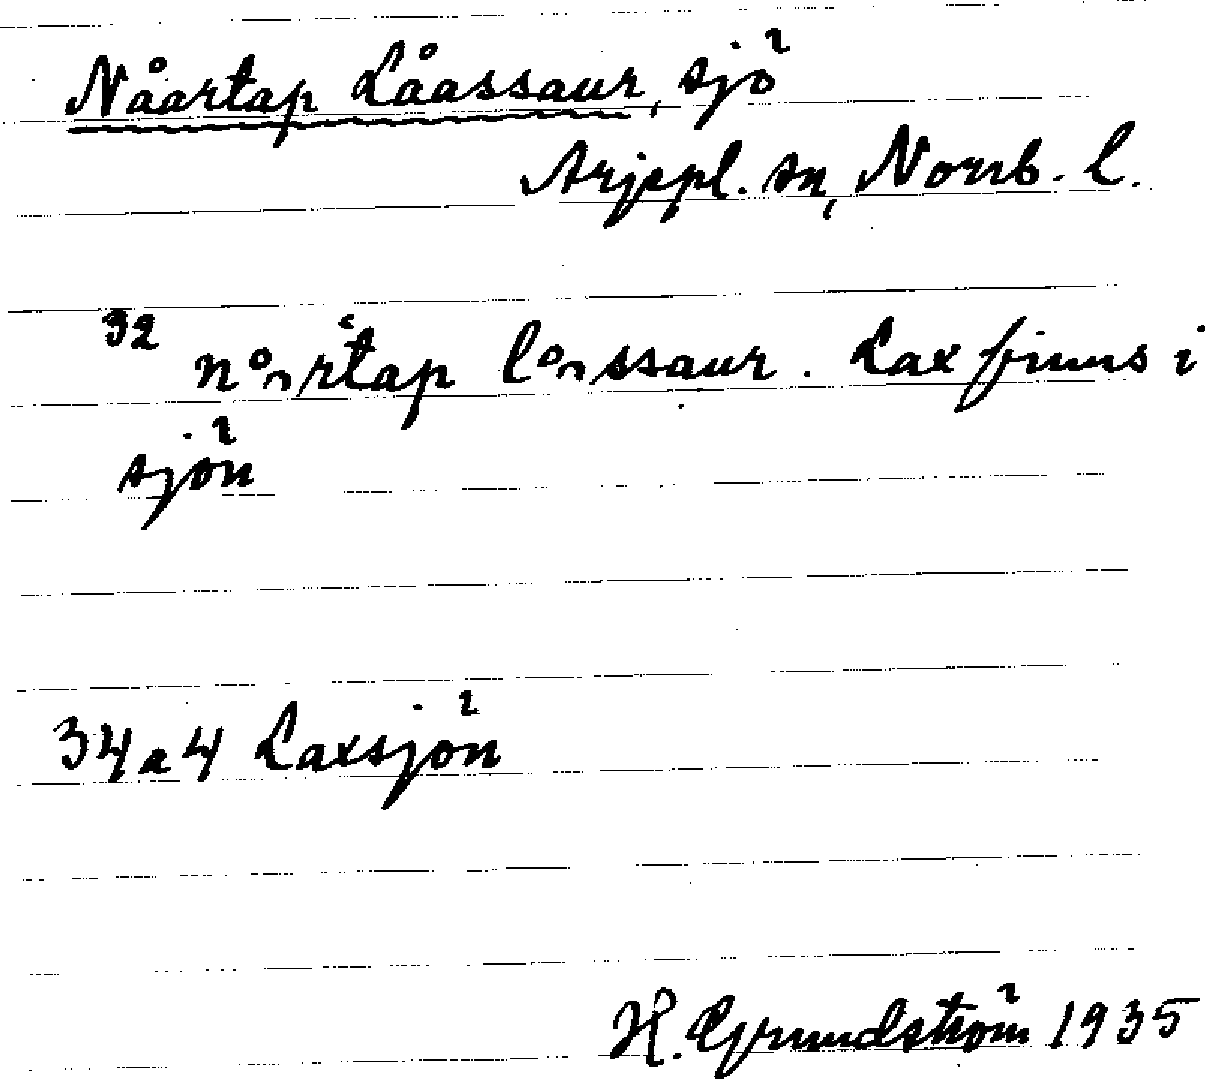 Nåartap Låassaur, sjö
Arjeppl. sn, Norrb. l.
32 lax finns i
sjön
34a4 Laxsjön
H. Grundström 1935